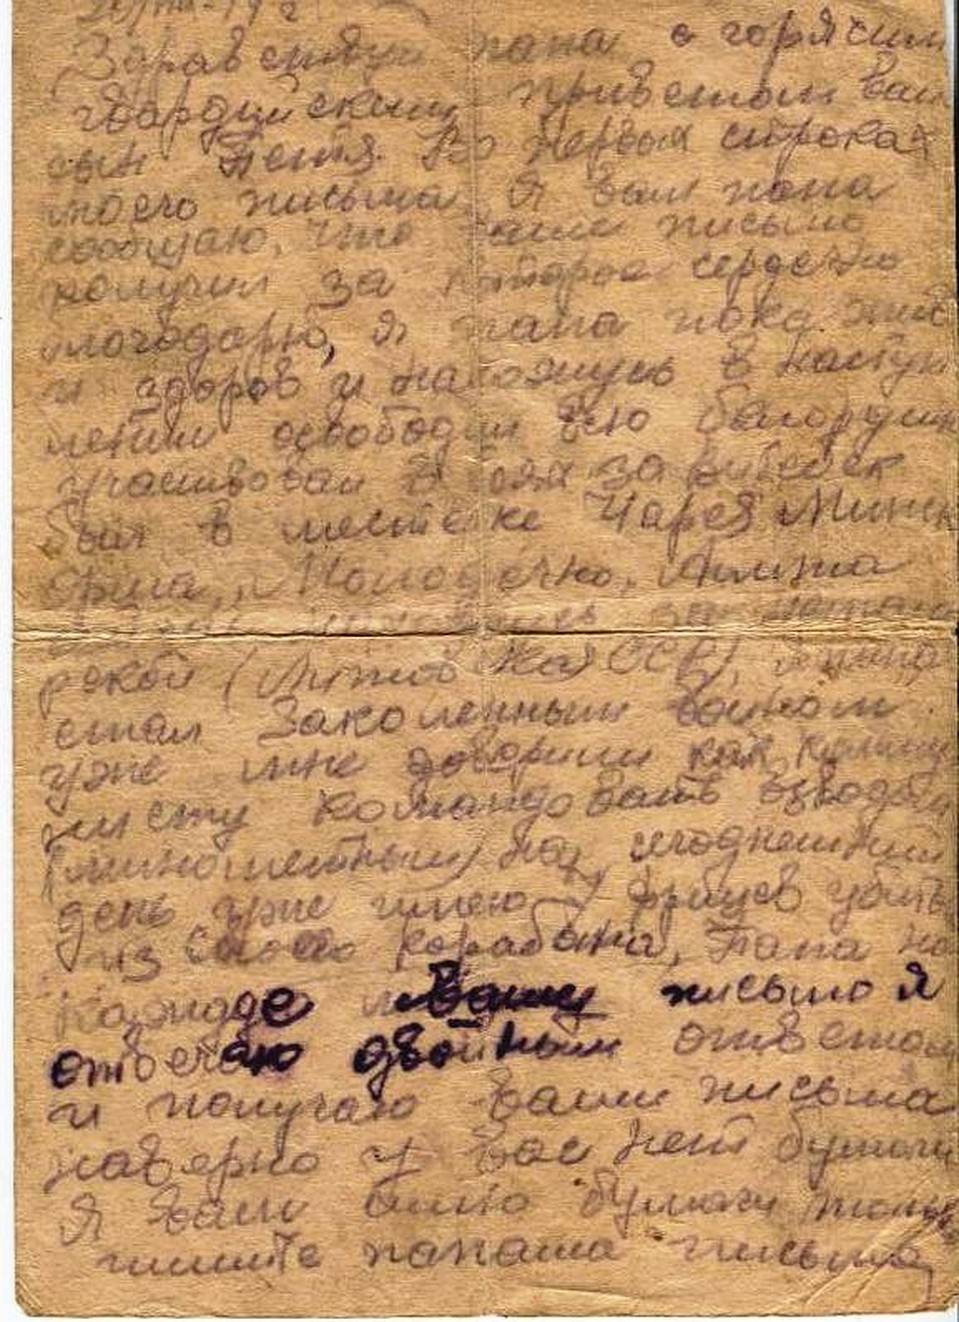 Здравствуй папа с горячим
гвардейским приветом ваш
сын Петя. Во первых строках
моего письма Я вам папа
сообщаю, что ваше письмо
получил за которое сердечно
благодарю, Я папа пока жив
и здоров и нахожусь в наступ
лении освободил всю белорусию
участвовал в боях за витебск
был в местечке Чарея Минск
Молодечно, Алита
за
рекой (Литовская ССР),
стал Законенным воином
уже мне доверили как комму
нисту командовать взводом
(минометным) на сегоднешний
день уже имею фрицев убить
из своего карабина, Папа на
каждое Ваше письмо Я
отвечаю двойным ответом
и получаю ваши письма
наверно у вас нет бумаги
Я вам бумаги только
пишите папаша письма